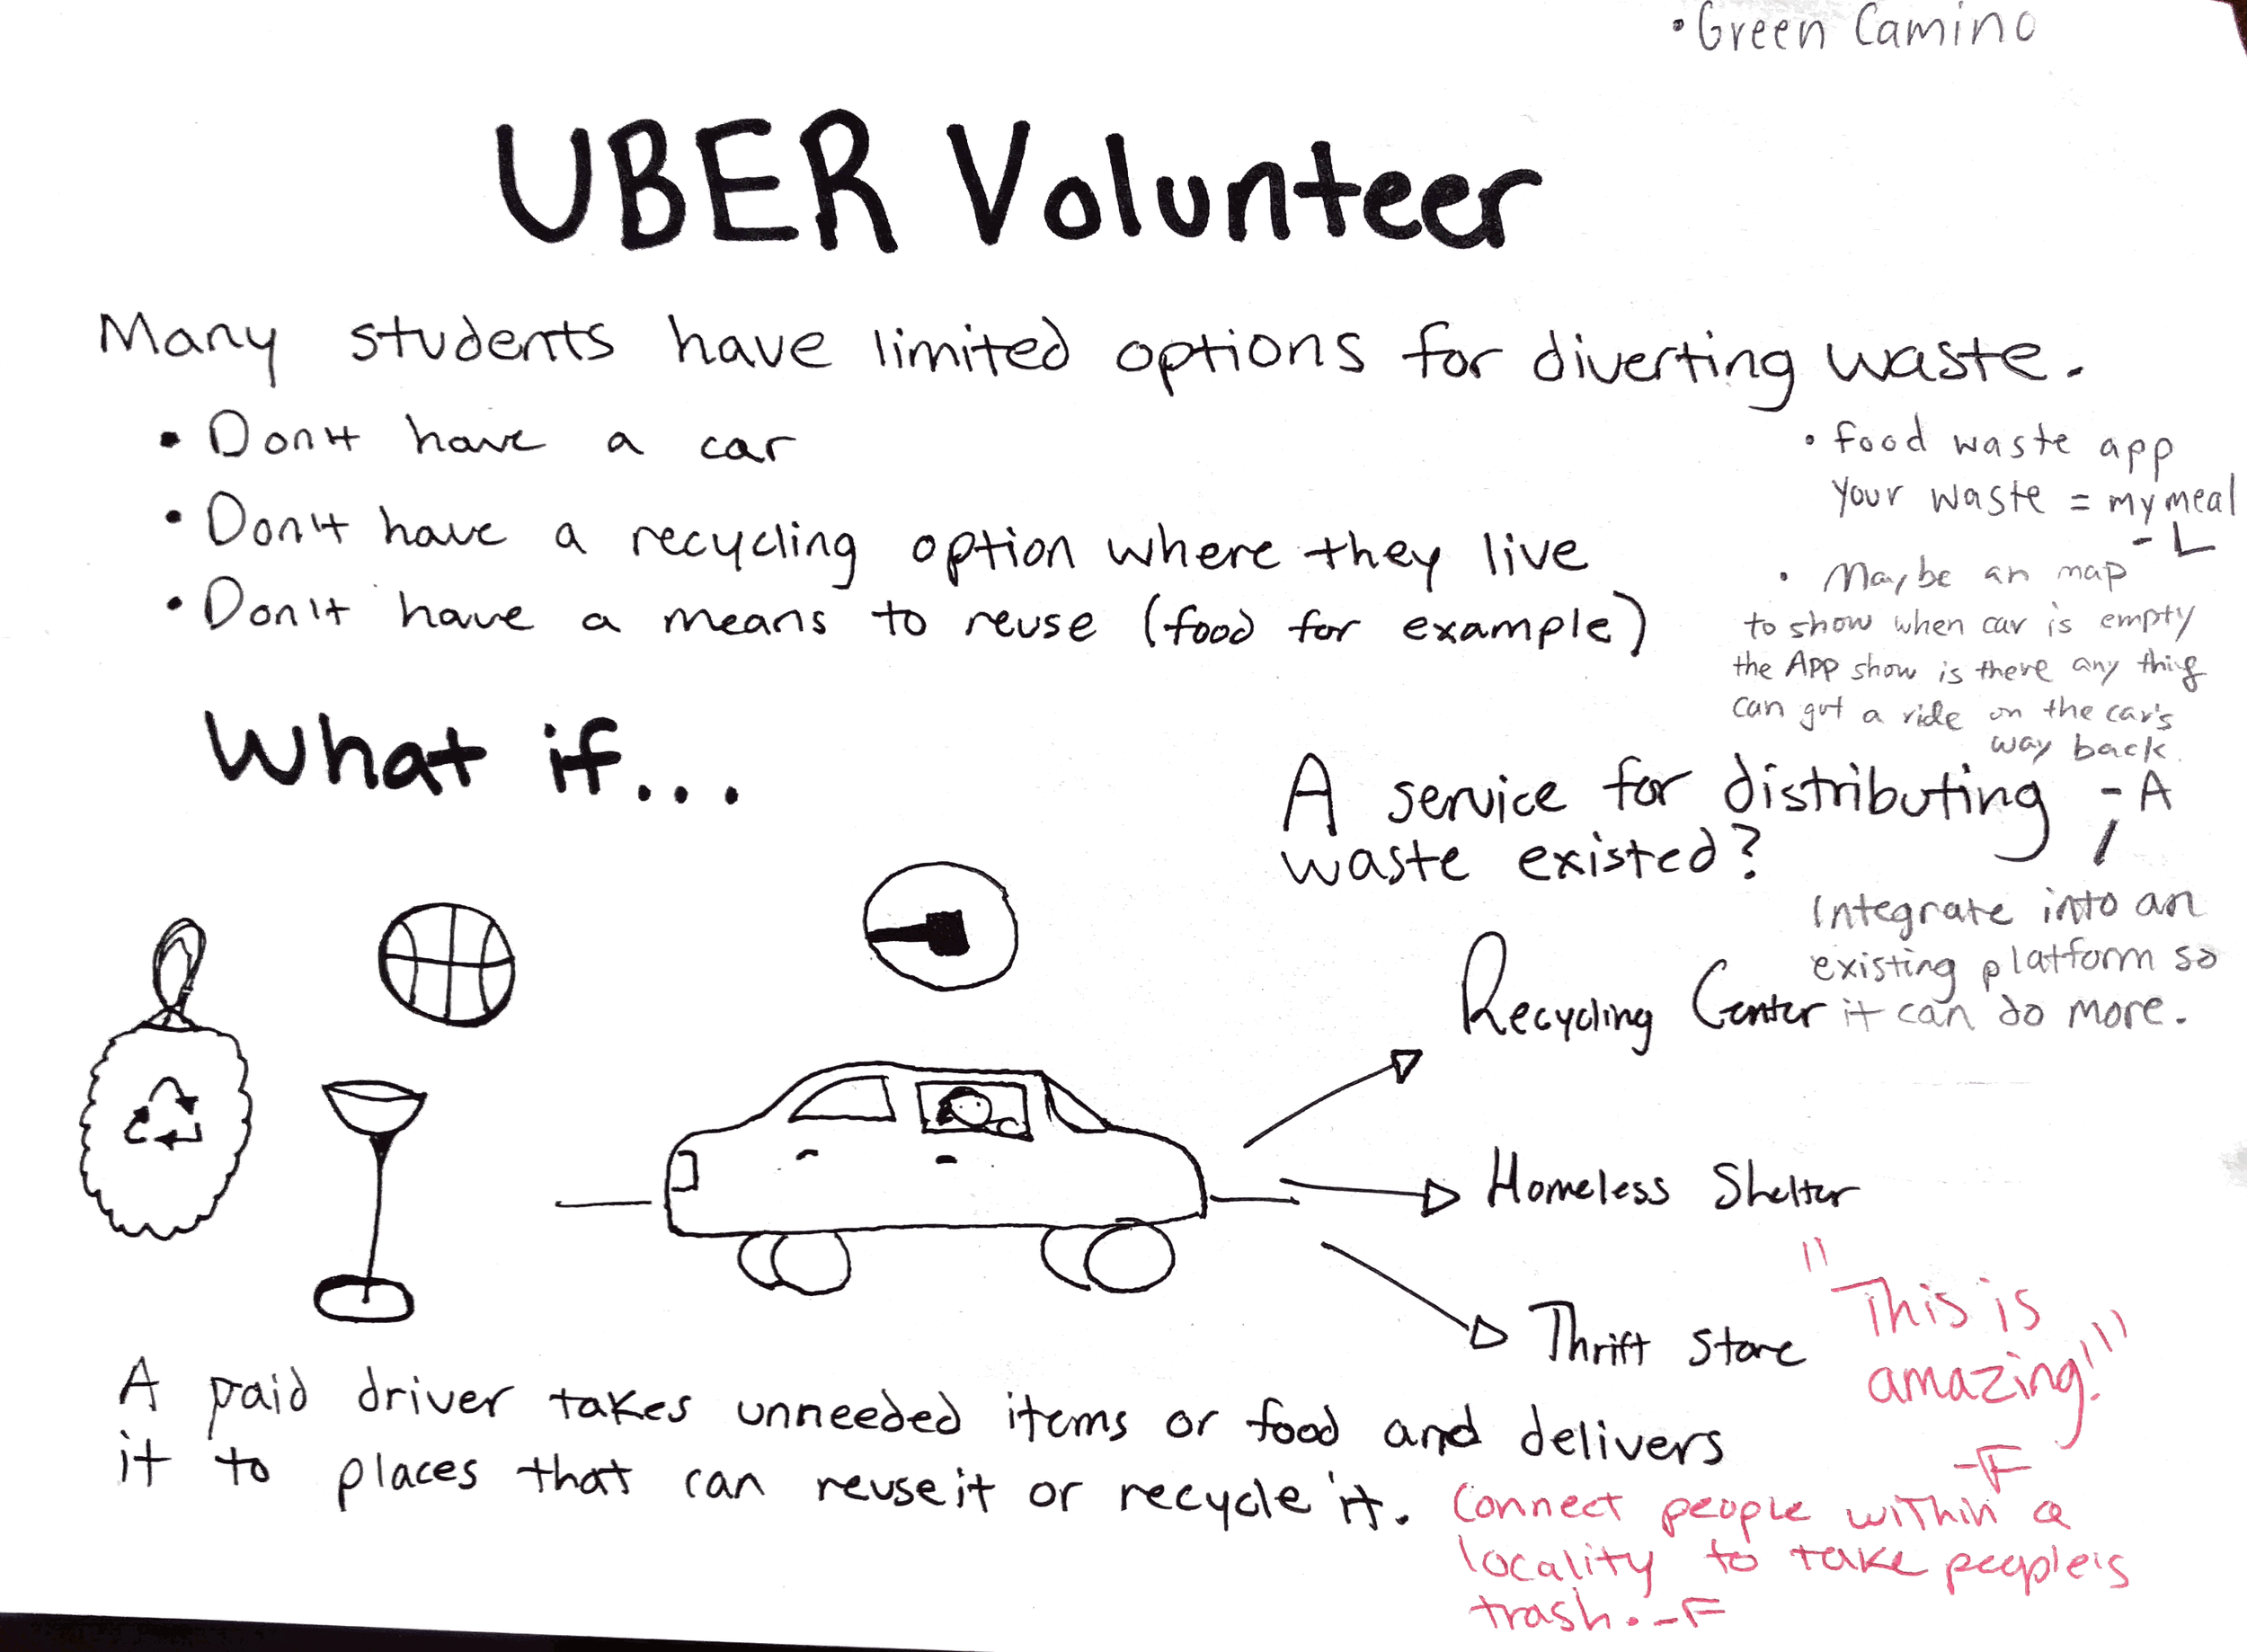 • Green Camino
UBER Volunteer
Many students have limited options for diverting waste.
• Don't have a car
• Don't have a recycling option where they live
• Don't have a means to reuse (food for example)
• food waste app
your waste = my meal
- L
• Maybe an map
to show when car is empty
the App show is there any thing
can gut a ride on the car's
way back.
- A
What if...
A service for distributing
waste existed?
Integrate into an
existing platform so
it can do more.
Recycling Center
Homeless Shelter
Thrift Store
"This is
amazing!"
-F
A paid driver takes unneeded items or food and delivers
it to places that can reuse it or recycle it.
Connect people within a
locality to take people's
trash. -F